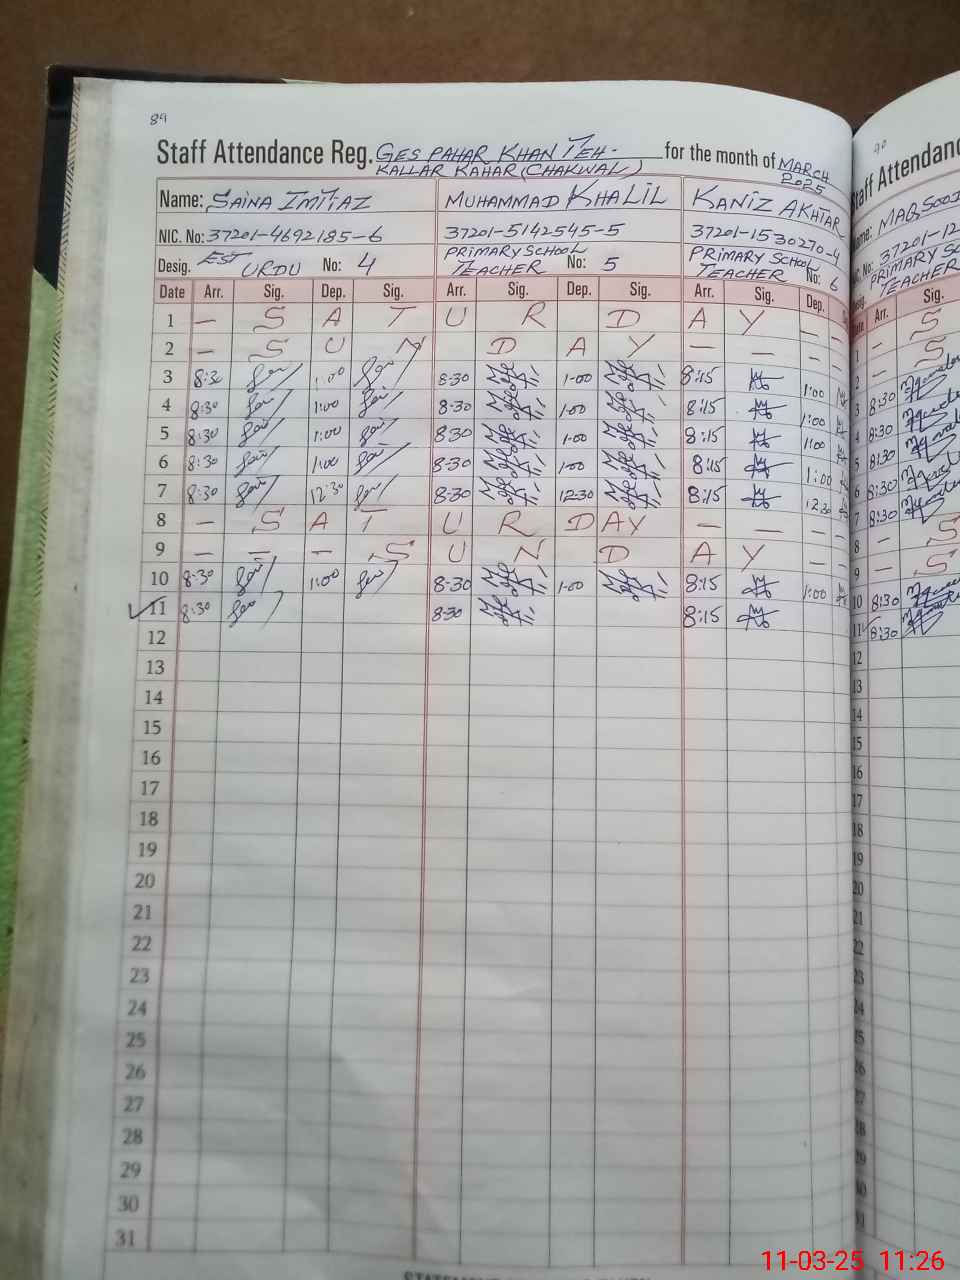 89
Staff Attendance Reg. GES PAHAR KHAN TEH- for the month of MARCH
KALLAR KAHAR (CHAKWAL) 2025
Name: SAINA IMTIAZ MUHAMMAD KHALIL KANIZ AKHTAR
NIC. No: 37201-4692185-6 37201-5142545-5 37201-1530270-4
Desig. EST URDU No: 4 PRIMARY SCHOOL TEACHER No: 5 PRIMARY SCHOOL TEACHER No: 6
Date Arr. Sig. Dep. Sig. Arr. Sig. Dep. Sig. Arr. Sig. Dep.
1 – S A T U R D A Y – –
2 – S U N D A Y – – – –
3 8:30 1:00 8-30 1-00 8:15 1:00
4 8:30 1:00 8-30 1-00 8:15 1:00
5 8:30 1:00 8-30 1-00 8:15 1:00
6 8:30 1:00 8-30 1-00 8:15 1:00
7 8:30 12:30 8-30 12-30 8:15 12:30
8 – S A T U R D A Y – – – –
9 – – – S U N D A Y – –
10 8:30 1:00 8-30 1-00 8:15 1:00
11 8:30 8-30 8:15
12
13
14
15
16
17
18
19
20
21
22
23
24
25
26
27
28
29
30
31
90
Staff Attendance
37201-12
PRIMARY SC
TEACHER
Arr. Sig.
1 – S
2 – S
3 8:30
4 8:30
5 8:30
6 8:30
7 8:30
8 – S
9 – S
10 8:30
11 8:30
12
13
14
15
16
17
18
19
20
21
22
23
24
25
26
27
28
29
11-03-25 11:26